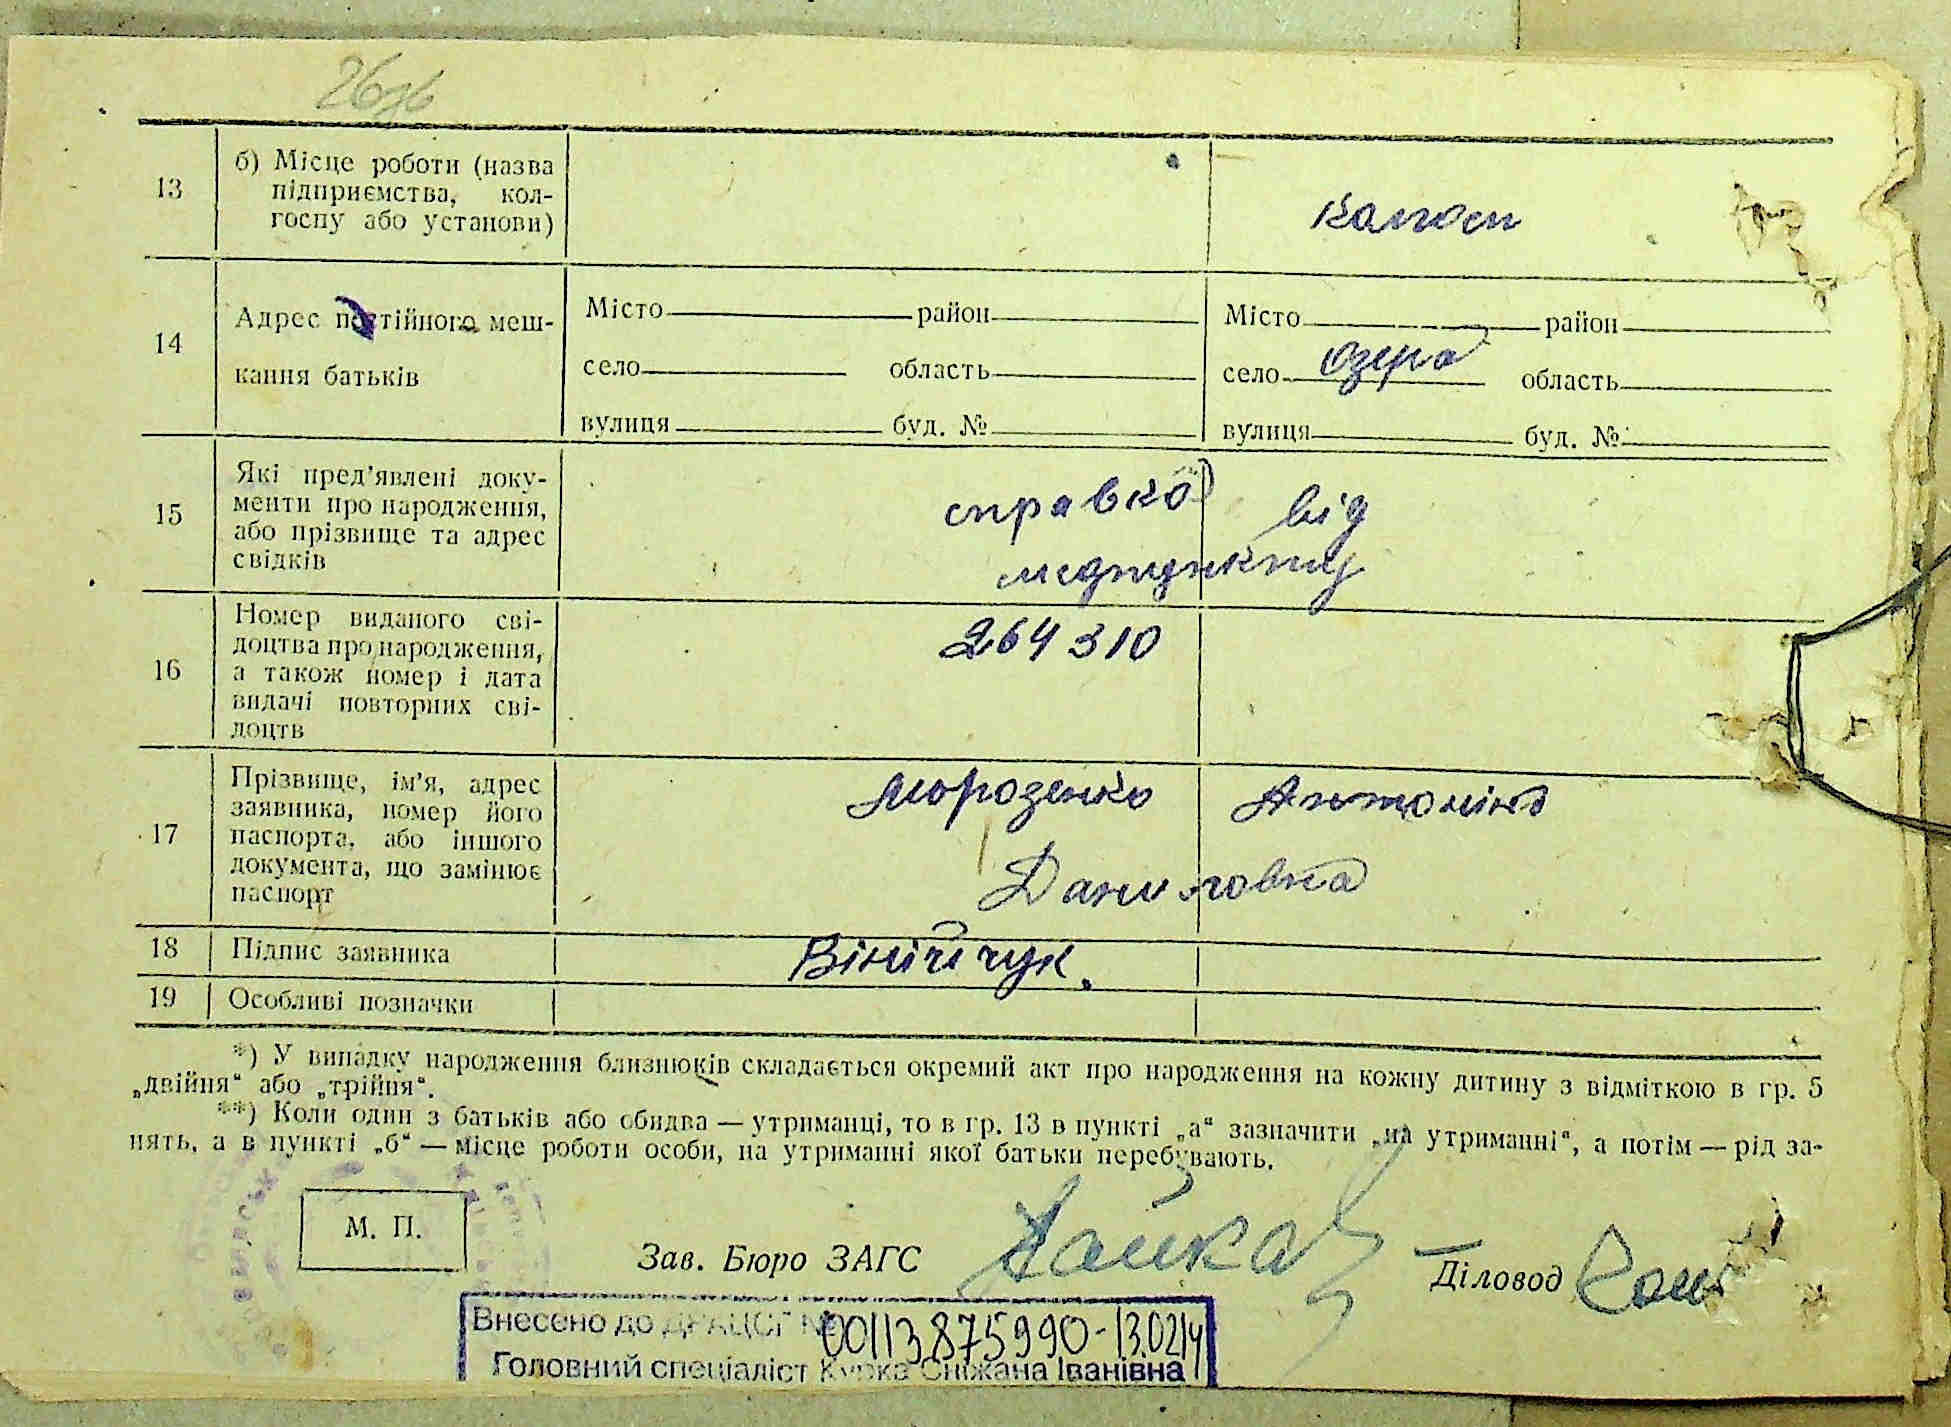 26зв
13 б) Місце роботи (назва
підприємства, кол-
госпу або установи)
колгосп
14 Адрес постійного меш-
кання батьків
Місто район Місто район
село область село Озера область
вулиця буд. № вулиця буд. №
15 Які пред'явлені доку-
менти про народження,
або прізвище та адрес
свідків
справка від
медпункту
16 Номер виданого сві-
доцтва про народження,
а також номер і дата
видачі повторних сві-
доцтв
264310
17 Прізвище, ім'я, адрес
заявника, номер його
паспорта, або іншого
документа, що замінює
паспорт
Морозенко Антоніна
Даниловна
18 Підпис заявника Вінійчук.
19 Особливі позначки
*) У випадку народження близнюків складається окремий акт про народження на кожну дитину з відміткою в гр. 5
„двійня“ або „трійня“.
**) Коли один з батьків або обидва — утриманці, то в гр. 13 в пункті „а“ зазначити „на утриманні“, а потім — рід за-
нять, а в пункті „б“ — місце роботи особи, на утриманні якої батьки перебувають.
М. П.
Зав. Бюро ЗАГС Діловод
Внесено до ДРАЦСГ № 00113875990-13.02.14
Головний спеціаліст Курка Сніжана Іванівна